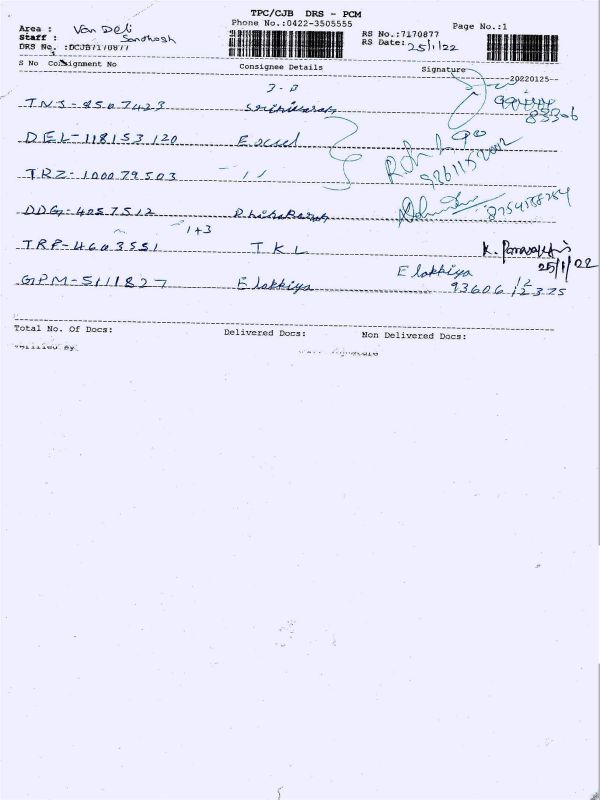 TPC/CJB DRS - PCM
Phone No.:0422-3505555 Page No.:1
Area : Van Deli
Staff : Sandhosh
DRS No. :DCJB7170877
RS No.:7170877
RS Date: 25/1/22
S No Consignment No Consignee Details Signature
20220125
TNJ-8507423
83306
DEL-118153120 Excel
TRZ-100079503 - 11
DDG-4057512
1+3
TRP-4603551 TKL
25/1/22
GPM-5111827 Elakkiya Elakkiya
93606 12375
Total No. Of Docs: Delivered Docs: Non Delivered Docs:
Verified By Signature